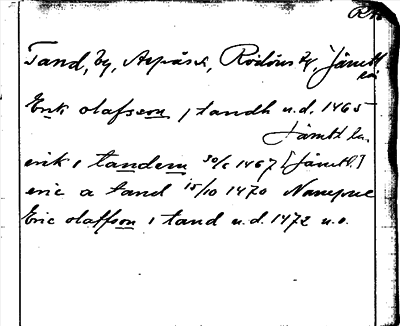 Tand, by, Aspåsen, Rödöns tg, Jämtl
län
Erik olafsson i tandh u.d. 1465
Jämtl. län
erik i tandem 30/6 1467 [Jämtl.]
eric a tand 15/10 1470
Eric olaffson i tand u.d. 1472 u.o.